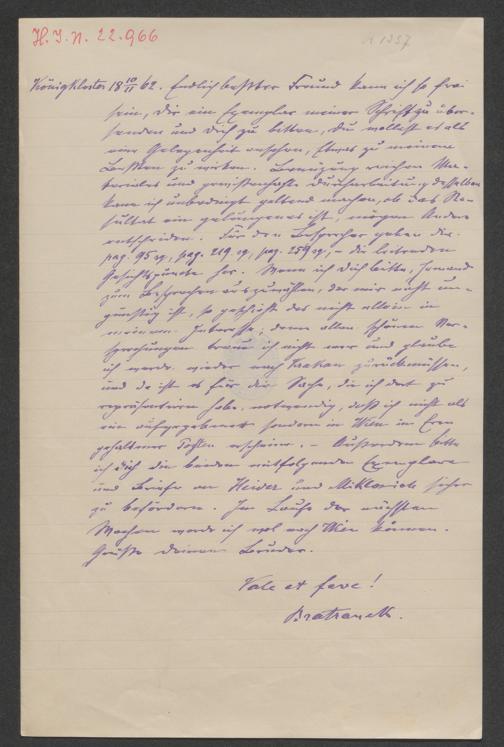 H. I. N. 22.966
Königskloster 18 10/11 62. Endlich bester Freund kann ich so frei
sein, Dir ein Exemplar meiner Schrift zu über-
senden und Dich zu bitten, Du wollest es als
eine Gelegenheit ansehen, Etwas zu meinem
Besten zu wirken. Benützung reichen Ma-
teriales und gewissenhafte Durcharbeitung desselben
kann ich unbedingt geltend machen, ob das Re-
sultat ein gelungenes ist, mögen Andere
entscheiden. Für den Besprecher geben die
pag. 95 sq., pag. 219 sq., pag. 259 sq., – die leitenden
Gesichtspunkte her. Wenn ich Dich bitte, Jemand
zum Besprechen auszuwählen, der mir nicht un-
günstig ist, so geschieht das nicht allein in
meinem Interesse; denn allen schönen Ver-
sprechungen traue ich nicht mehr und glaube
ich werde wieder nach Krakau zurückmüssen,
und da ist es für die Sache, die ich dort zu
repräsentieren habe, notwendig, daß ich nicht als
ein aufgegebener sondern in Wien in Eren
gehaltener Posten erscheine. – Außerdem bitte
ich Dich die beiden mitfolgenden Exemplare
und Briefe an Heider und Miklosich sicher
zu befördern. Im Laufe der nächsten
Wochen werde ich wol nach Wien kommen.
Grüße Deinen Bruder.
Vale et fave!
Bratranek.